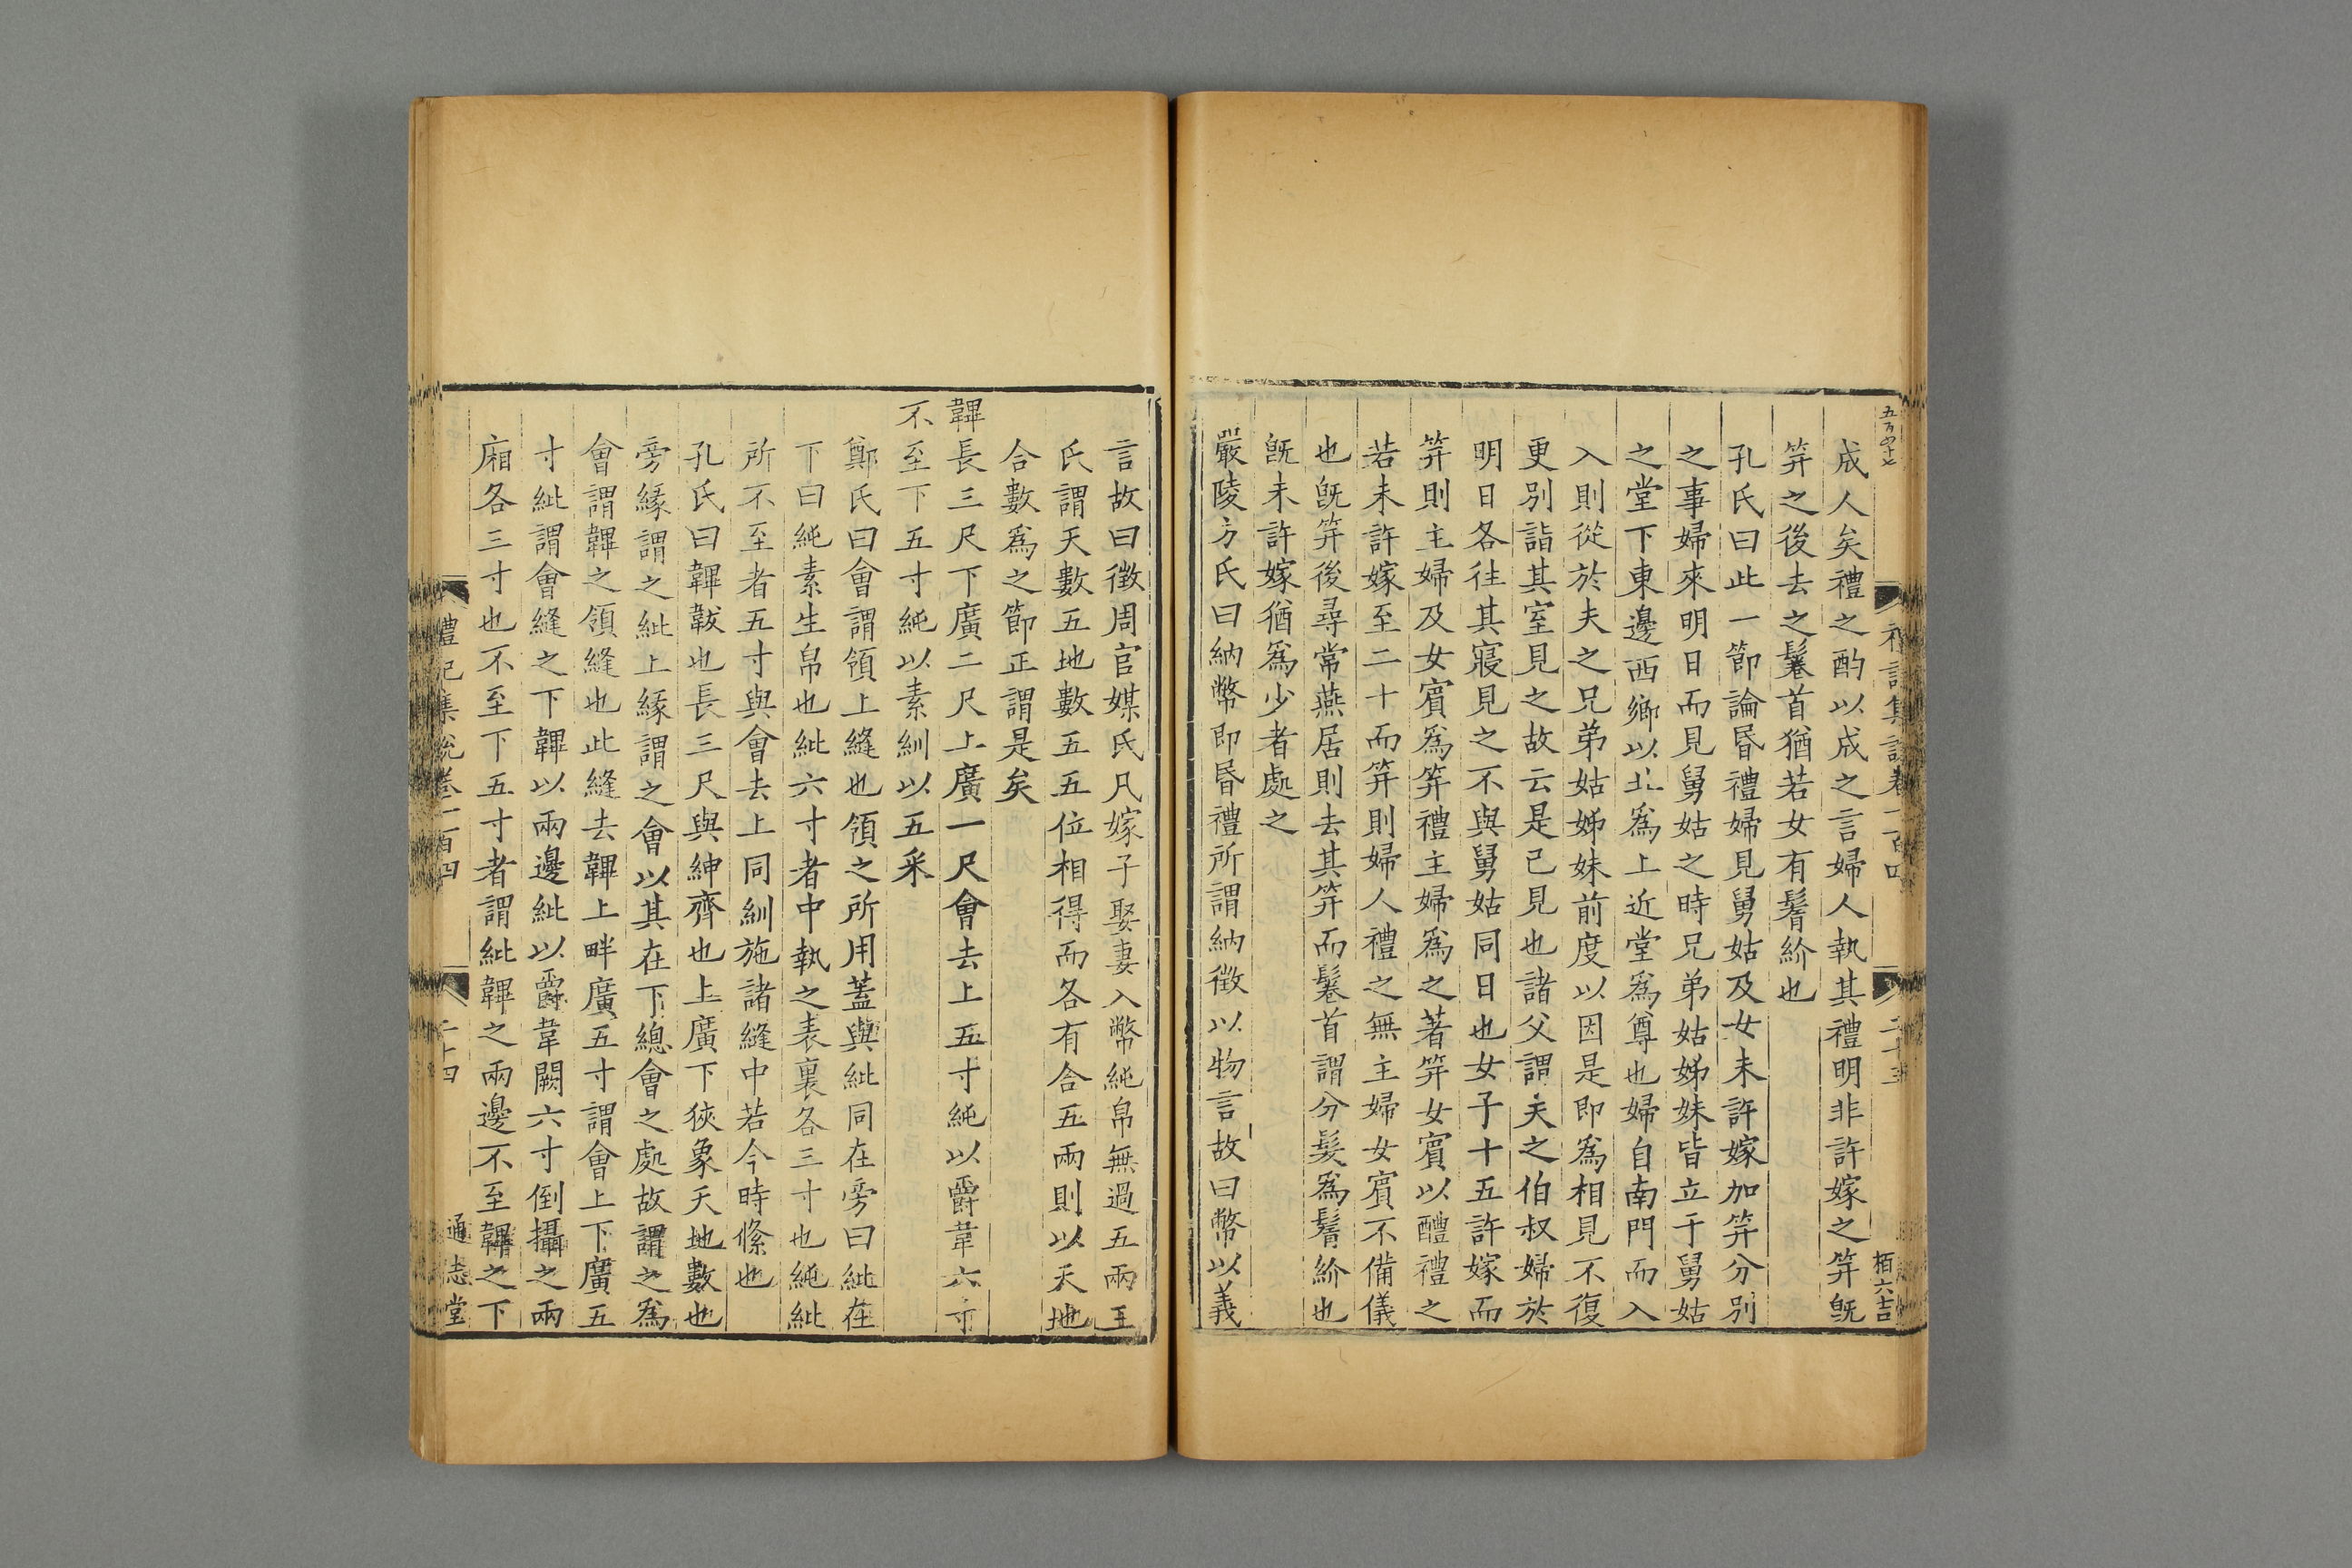 五百四十七
禮記集說卷一百四
二十三
栢六吉
成人矣禮之酌以成之言婦人執其禮明非許嫁之筓旣
筓之後去之鬈首猶若女有鬌紒也
孔氏曰此一節論昬禮婦見舅姑及女未許嫁加筓分別
之事婦來明日而見舅姑之時兄弟姑姊妹皆立于舅姑
之堂下東邊西鄉以北爲上近堂爲尊也婦自南門而入
入則從於夫之兄弟姑姊妹前度以因是即爲相見不復
更別詣其室見之故云是已見也諸父謂夫之伯叔婦於
明日各往其寢見之不與舅姑同日也女子十五許嫁而
筓則主婦及女賓爲筓禮主婦爲之著筓女賓以醴禮之
若未許嫁至二十而筓則婦人禮之無主婦女賓不備儀
也旣筓後尋常燕居則去其筓而鬈首謂分髮爲鬌紒也
旣未許嫁猶爲少者處之
嚴陵方氏曰納幣即昬禮所謂納徵以物言故曰幣以義
言故曰徵周官媒氏凡嫁子娶妻入幣純帛無過五兩王
氏謂天數五地數五五位相得而各有合五兩則以天地
合數爲之節正謂是矣
韠長三尺下廣二尺上廣一尺會去上五寸純以爵韋六寸
不至下五寸純以素紃以五采
鄭氏曰會謂領上縫也領之所用蓋與紕同在旁曰紕在
下曰純素生帛也紕六寸者中執之表裏各三寸也純紕
所不至者五寸與會去上同紃施諸縫中若今時絛也
孔氏曰韠韍也長三尺與紳齊也上廣下狹象天地數也
旁緣謂之紕上緣謂之會以其在下總會之處故謂之爲
會謂韠之領縫也此縫去韠上畔廣五寸謂會上下廣五
寸紕謂會縫之下韠以兩邊紕以爵韋闕六寸倒攝之兩
廂各三寸也不至下五寸者謂紕韠之兩邊不至韠之下
禮記集說卷一百四
二十四
通志堂